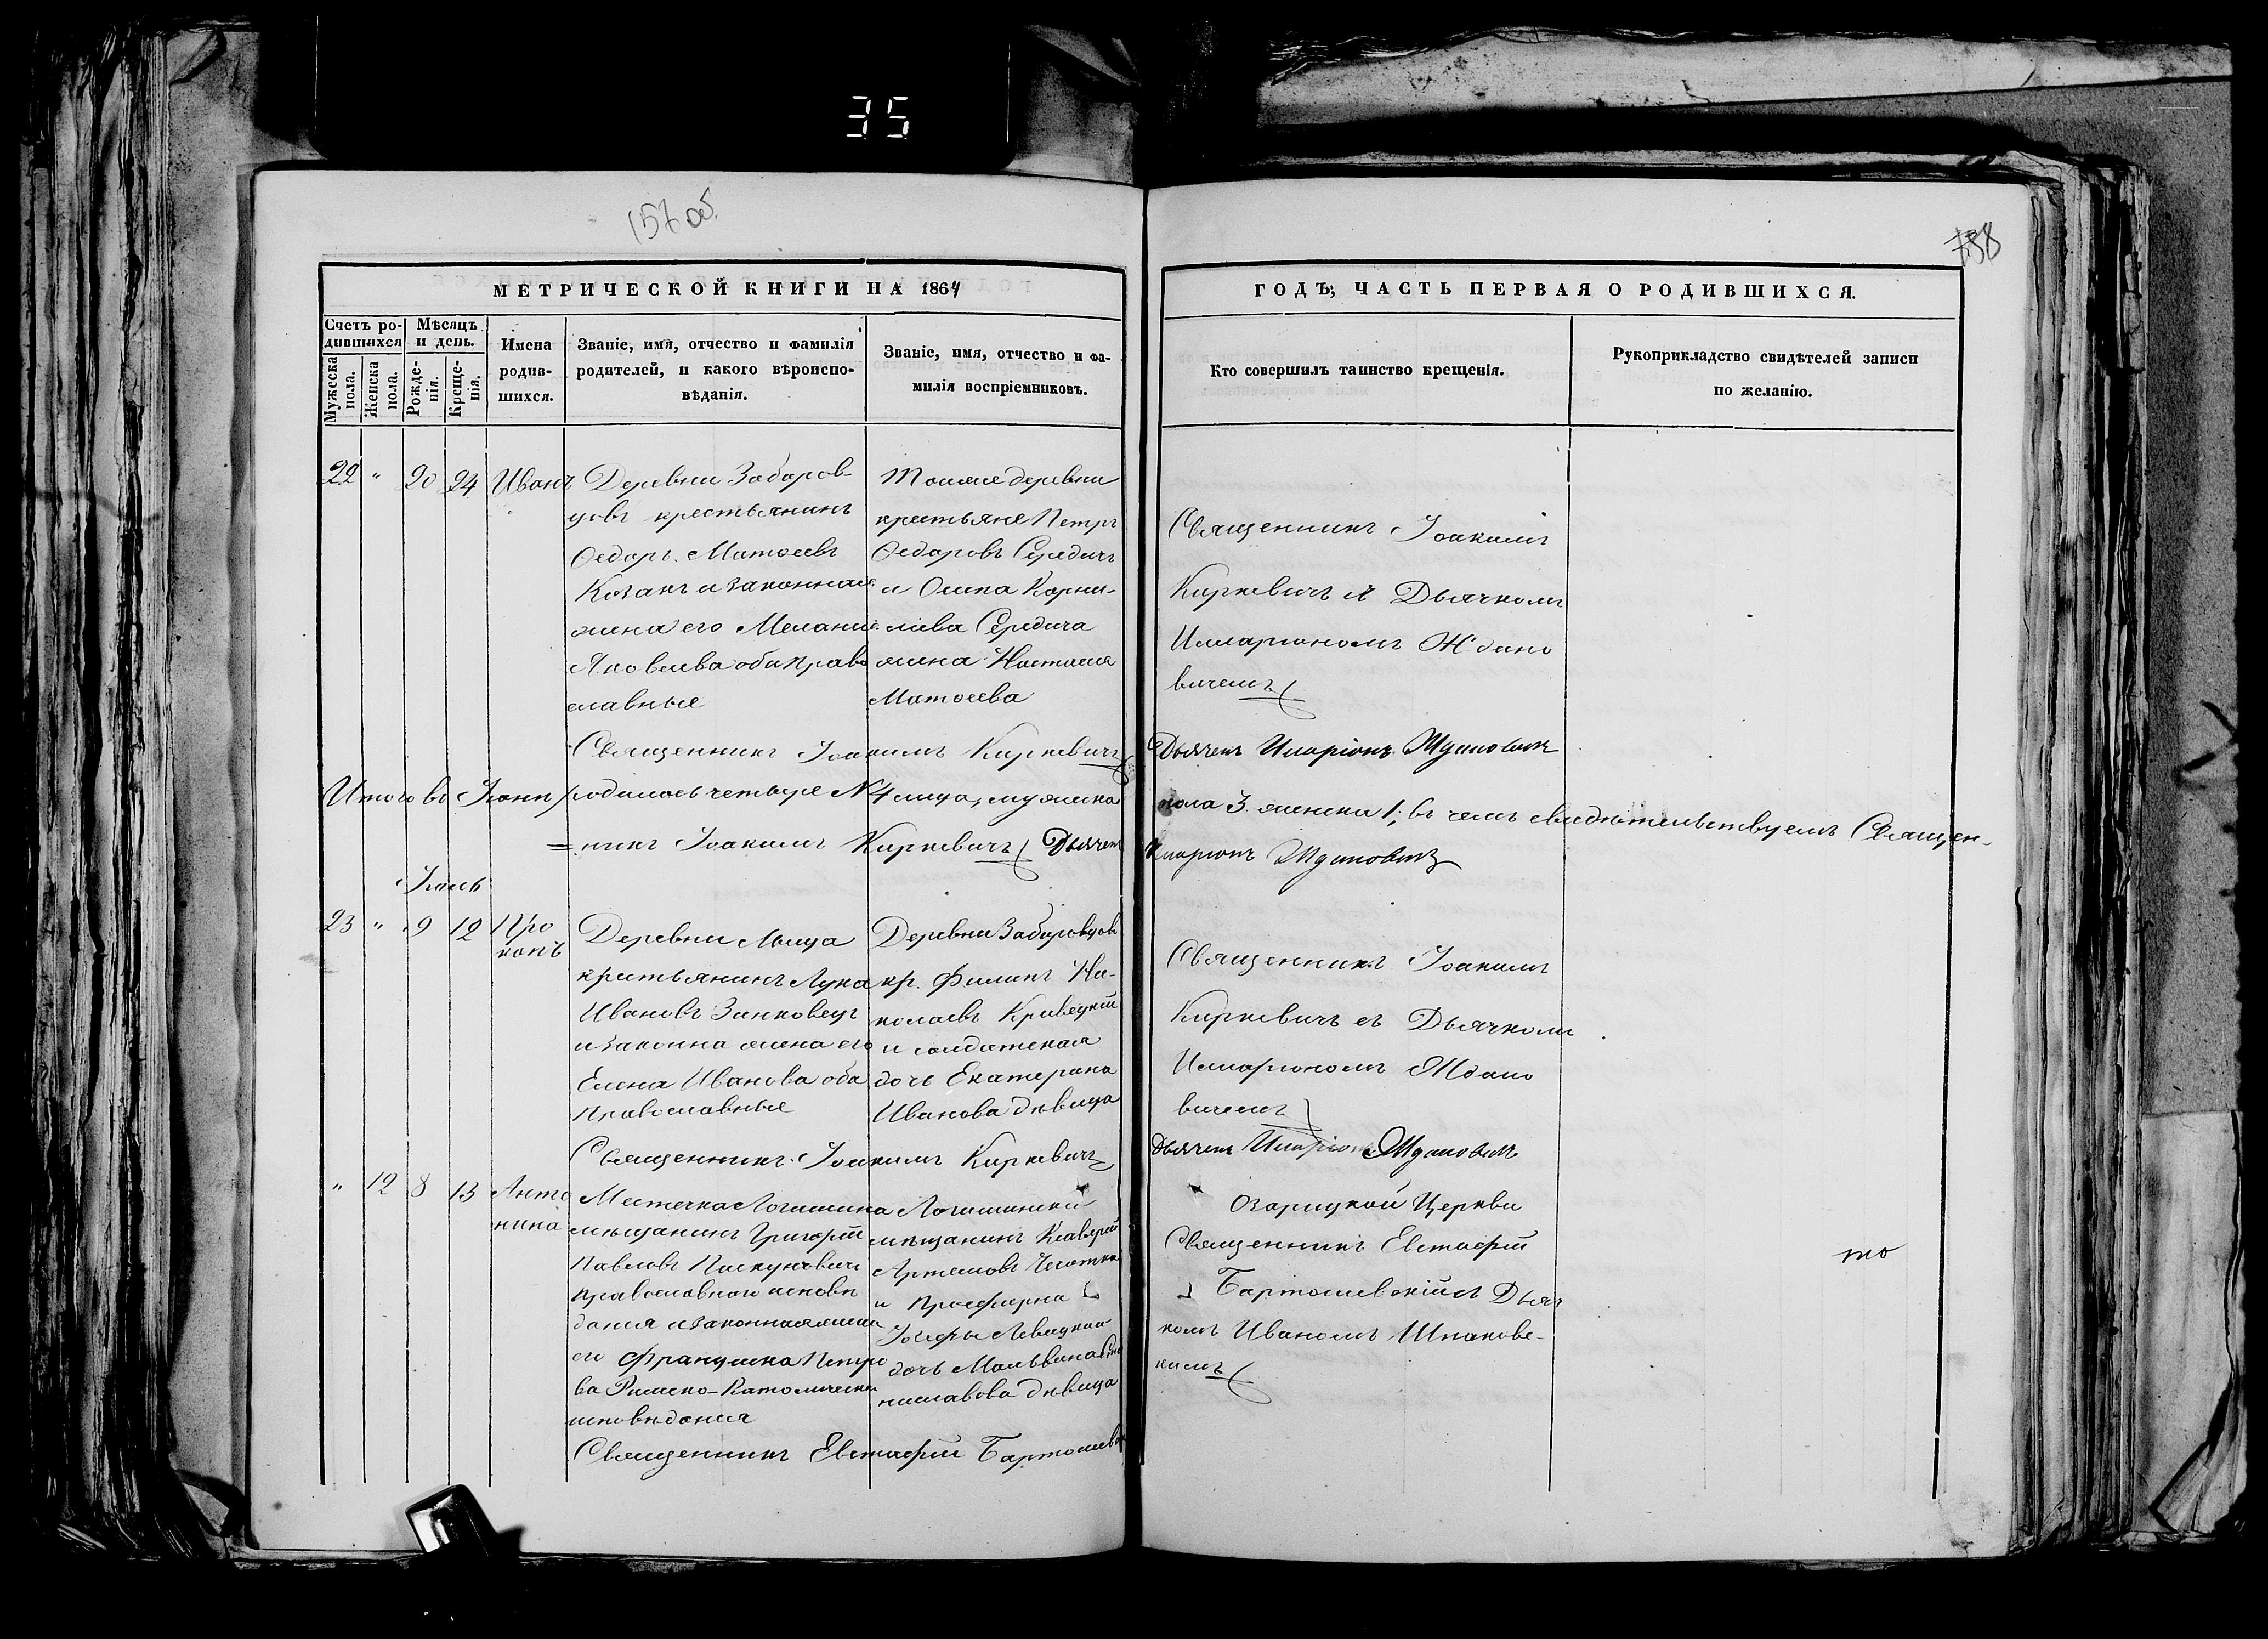 35
157 об.
158
МЕТРИЧЕСКОЙ КНИГИ НА 1864
ГОДЪ; ЧАСТЬ ПЕРВАЯ О РОДИВШИХСЯ.
Счетъ ро-
дившихся
Мужеска
пола.
Женска
пола.
Мѣсяцъ
и день.
Рожде-
нія.
Креще-
нія.
Имена
родив-
шихся.
Званіе, имя, отчество и фамилія
родителей, и какого вѣроиспо-
вѣданія.
Званіе, имя, отчество и фа-
милія воспріемниковъ.
Кто совершилъ таинство крещенія.
Рукоприкладство свидѣтелей записи
по желанію.
22 " 20 24 Иванъ
Деревни Заборов-
цовъ крестьянинъ
Ѳедоръ Матѳеевъ
Козакъ и законная
жена его Меланія
Яковлева оба право
славные
Тоижe деревни
крестьяне Петръ
Ѳедоровъ Середичъ
и Осипа Корни-
лиева Середича
жена Настасія
Матѳеева
Священникъ Іоакимъ
Киркевичъ съ Дьячкомъ
Илларіономъ Ждано
вичемъ
Священникъ Іоакимъ Киркевичъ
Дьячекъ Иларіонъ Ждановичъ
Итого въ Іюнѣ родилось четыре № 4 лица, мужеска
пола 3. женска 1; въ чемъ свидѣтельствуемъ Священ-
=никъ Іоакимъ Киркевичъ Дьячекъ
Иларіонъ Ждановичъ
Іюль
23 " 9 12 Про
копъ
Деревни Мыца
крестьянинъ Лука
Ивановъ Зинковецъ
и законна жена его
Елена Иванова оба
православные
Деревни Заборовцовъ
кр. Филипъ Ни-
колаевъ Кривецкій
и солдатская
дочь Екатерина
Иванова дѣвица
Священникъ Іоакимъ
Киркевичъ съ Дьячкомъ
Илларіономъ Ждано
вичемъ
Священникъ Іоакимъ Киркевичъ
Дьячекъ Иларіонъ Ждановичъ
" 12 8 13 Анто
нина
Местечка Логишина
мѣщанинъ Григорій
Павловъ Пискуновичъ
православнаго исповѣ
данія и законная жена
его Францишка Петро
ва Римско-Католическ
исповѣданія
Логишинскій
мѣщанинъ Ксаверій
Артемовъ
и
Іозефы Левицкой
дочь Мальвина
ниславова дѣвица
Озарицкой Церкви
Священникъ Евстафій
Бартошевскій съ Дьяч
комъ Иваномъ Шпаковс-
кимъ
то
Священникъ Евстафій Бартошевск